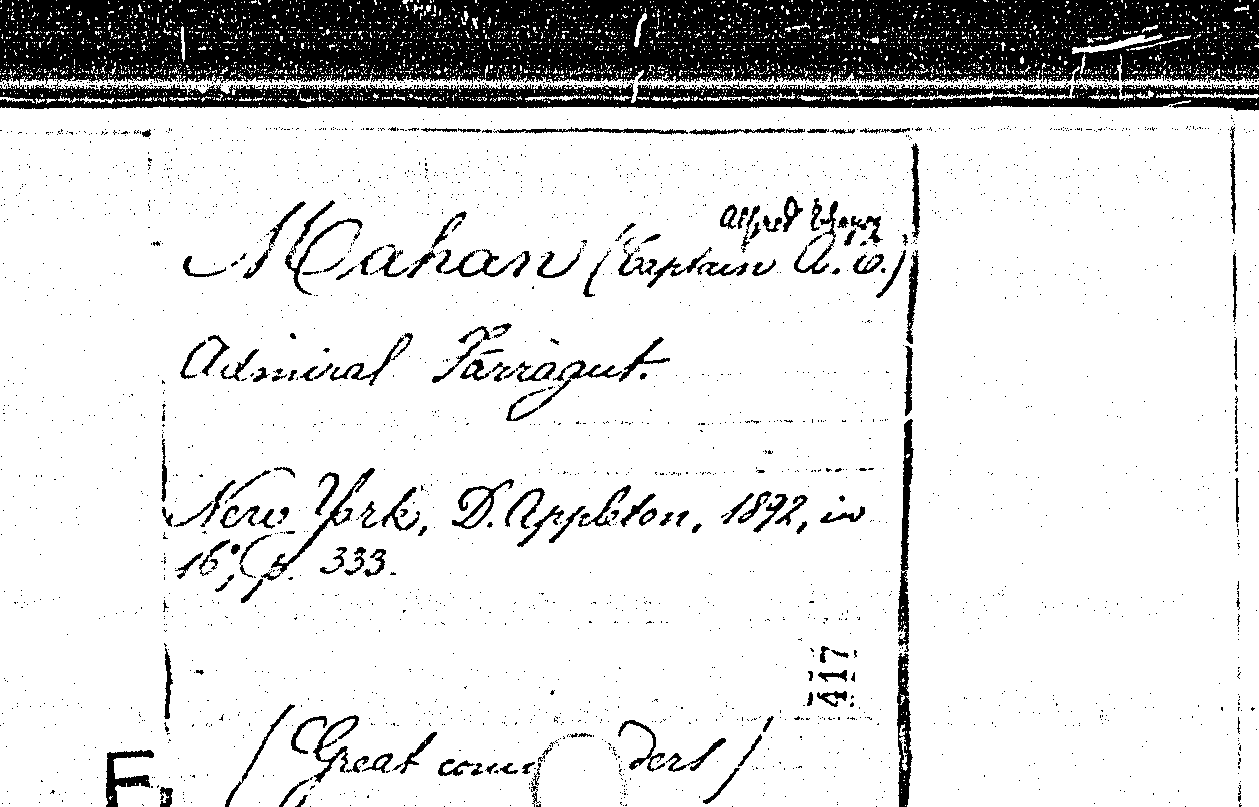 Alfred Thayer
Mahan (Captain A. T.)
Admiral Farragut.
New York, D. Appleton, 1892, in
16°, p. 333.
417
(Great comm ders)
E